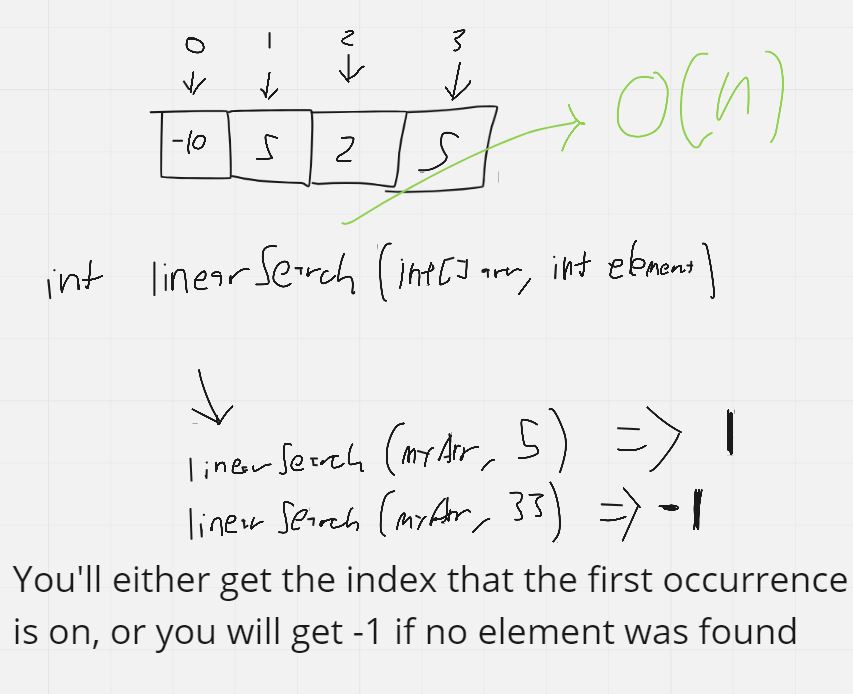 0 1 2 3
-10 5 2 5
O(n)
int linearSearch (int[] arr, int element)
linearSearch (myArr, 5) => 1
linearSearch (myArr, 33) => -1
You'll either get the index that the first occurrence
is on, or you will get -1 if no element was found